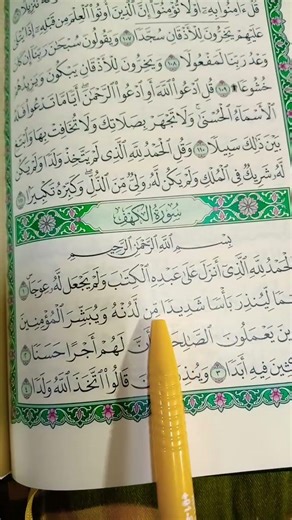 قُلْ ءَامِنُوا۟ بِهِۦٓ أَوْ لَا تُؤْمِنُوٓا۟ إِنَّ ٱلَّذِينَ أُوتُوا۟ ٱلْعِلْمَ مِن قَبْلِهِۦٓ إِذَا يُتْلَىٰ
عَلَيْهِمْ يَخِرُّونَ لِلْأَذْقَانِ سُجَّدًا ١٠٧ وَيَقُولُونَ سُبْحَٰنَ رَبِّنَآ إِن
وَعْدُ رَبِّنَا لَمَفْعُولًا ١٠٨ وَيَخِرُّونَ لِلْأَذْقَانِ يَبْكُونَ وَيَزِيدُهُمْ
خُشُوعًا ۩ ١٠٩ قُلِ ٱدْعُوا۟ ٱللَّهَ أَوِ ٱدْعُوا۟ ٱلرَّحْمَٰنَ أَيًّا مَّا تَدْعُوا۟ فَلَهُ
ٱلْأَسْمَآءُ ٱلْحُسْنَىٰ وَلَا تَجْهَرْ بِصَلَاتِكَ وَلَا تُخَافِتْ بِهَا وَٱبْتَغِ
بَيْنَ ذَٰلِكَ سَبِيلًا ١١٠ وَقُلِ ٱلْحَمْدُ لِلَّهِ ٱلَّذِى لَمْ يَتَّخِذْ وَلَدًا وَلَمْ يَكُن
لَّهُۥ شَرِيكٌ فِى ٱلْمُلْكِ وَلَمْ يَكُن لَّهُۥ وَلِىٌّ مِّنَ ٱلذُّلِّ وَكَبِّرْهُ تَكْبِيرًۢا ١١١
سُورَةُ الكَهْفِ
بِسْمِ ٱللَّهِ ٱلرَّحْمَٰنِ ٱلرَّحِيمِ
ٱلْحَمْدُ لِلَّهِ ٱلَّذِىٓ أَنزَلَ عَلَىٰ عَبْدِهِ ٱلْكِتَٰبَ وَلَمْ يَجْعَل لَّهُۥ عِوَجَا ١
لِّيُنذِرَ بَأْسًا شَدِيدًا مِّن لَّدُنْهُ وَيُبَشِّرَ ٱلْمُؤْمِنِينَ
يَعْمَلُونَ أَنَّ لَهُمْ أَجْرًا حَسَنًا ٢
فِيهِ أَبَدًا ٣ قَالُوا۟ ٱتَّخَذَ ٱللَّهُ وَلَدًا ٤